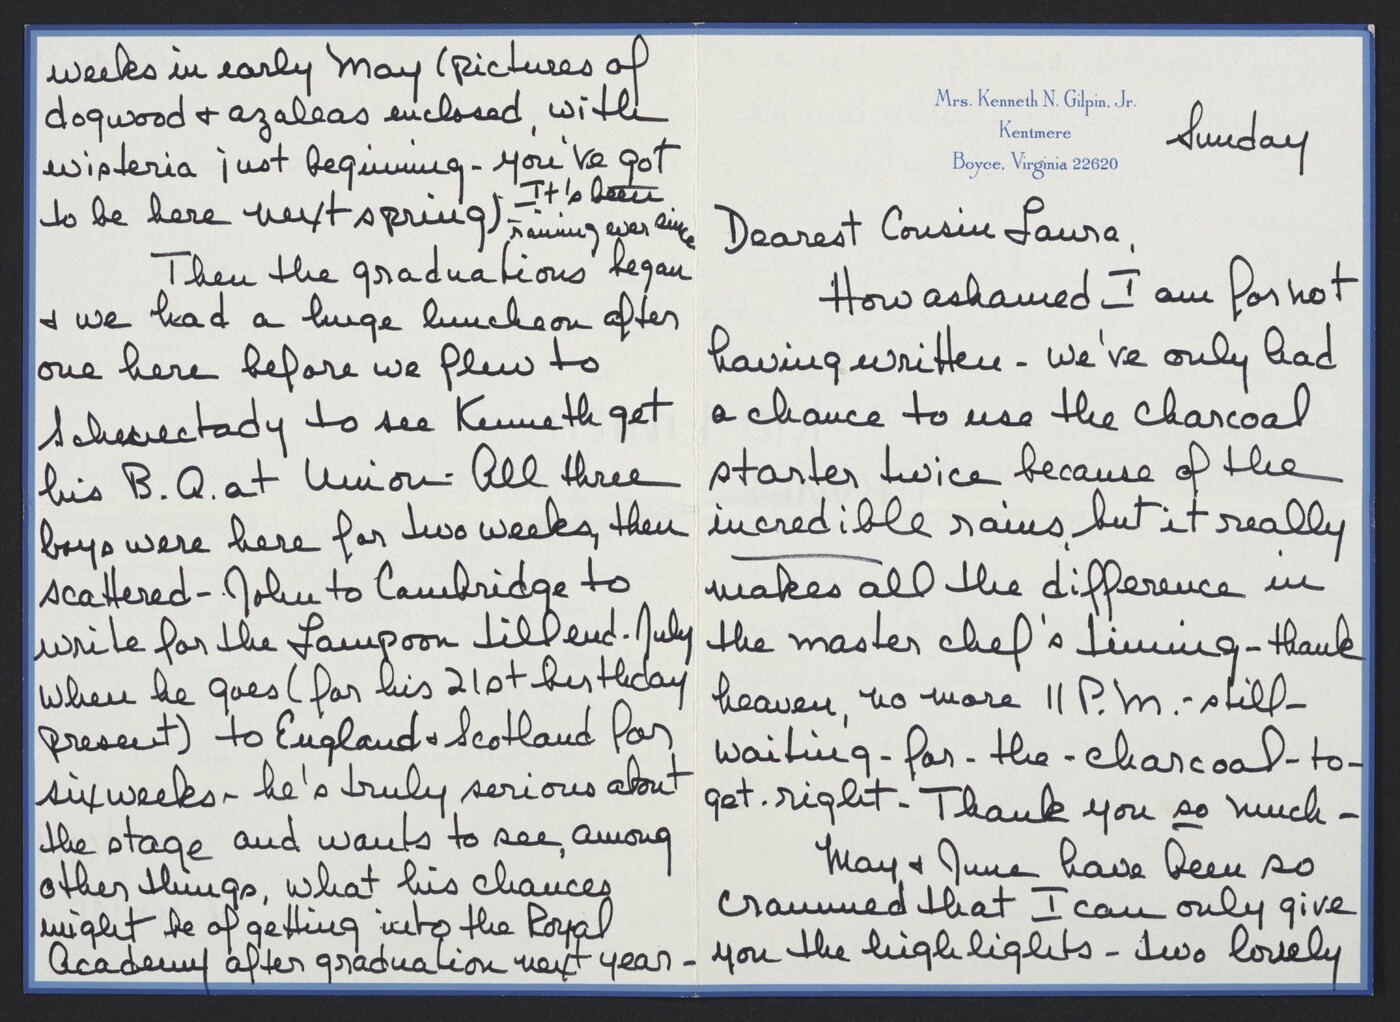 Mrs. Kenneth N. Gilpin, Jr.
Kentmere
Boyce, Virginia 22620
Sunday
Dearest Cousin Laura,
How ashamed I am for not
having written - we've only had
a chance to use the charcoal
starter twice because of the
incredible rains, but it really
makes all the difference in
the master chef's timing - thank
heaven, no more 11 P.M. - still -
waiting - for - the - charcoal - to -
get - right - Thank you so much -
May & June have been so
crammed that I can only give
you the highlights - two lovely
weeks in early May (pictures of
dogwood & azaleas enclosed, with
wisteria just beginning - you've got
to be here next spring) It's been
raining ever since
Then the graduations began
& we had a huge luncheon after
one here before we flew to
Schenectady to see Kenneth get
his B.A. at Union - All three
boys were here for two weeks, then
scattered - John to Cambridge to
write for the Lampoon till end - July
when he goes (for his 21st birthday
present) to England & Scotland for
six weeks - he's truly serious about
the stage and wants to see, among
other things, what his chances
might be of getting into the Royal
Academy after graduation next year -